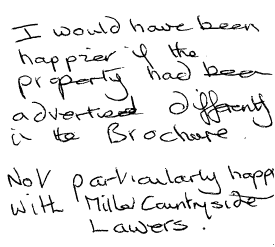 I would have been
happier if the
property had been
advertised differently
in the Brochure.
Not particularly happ
with Miller Countryside
Lawers.